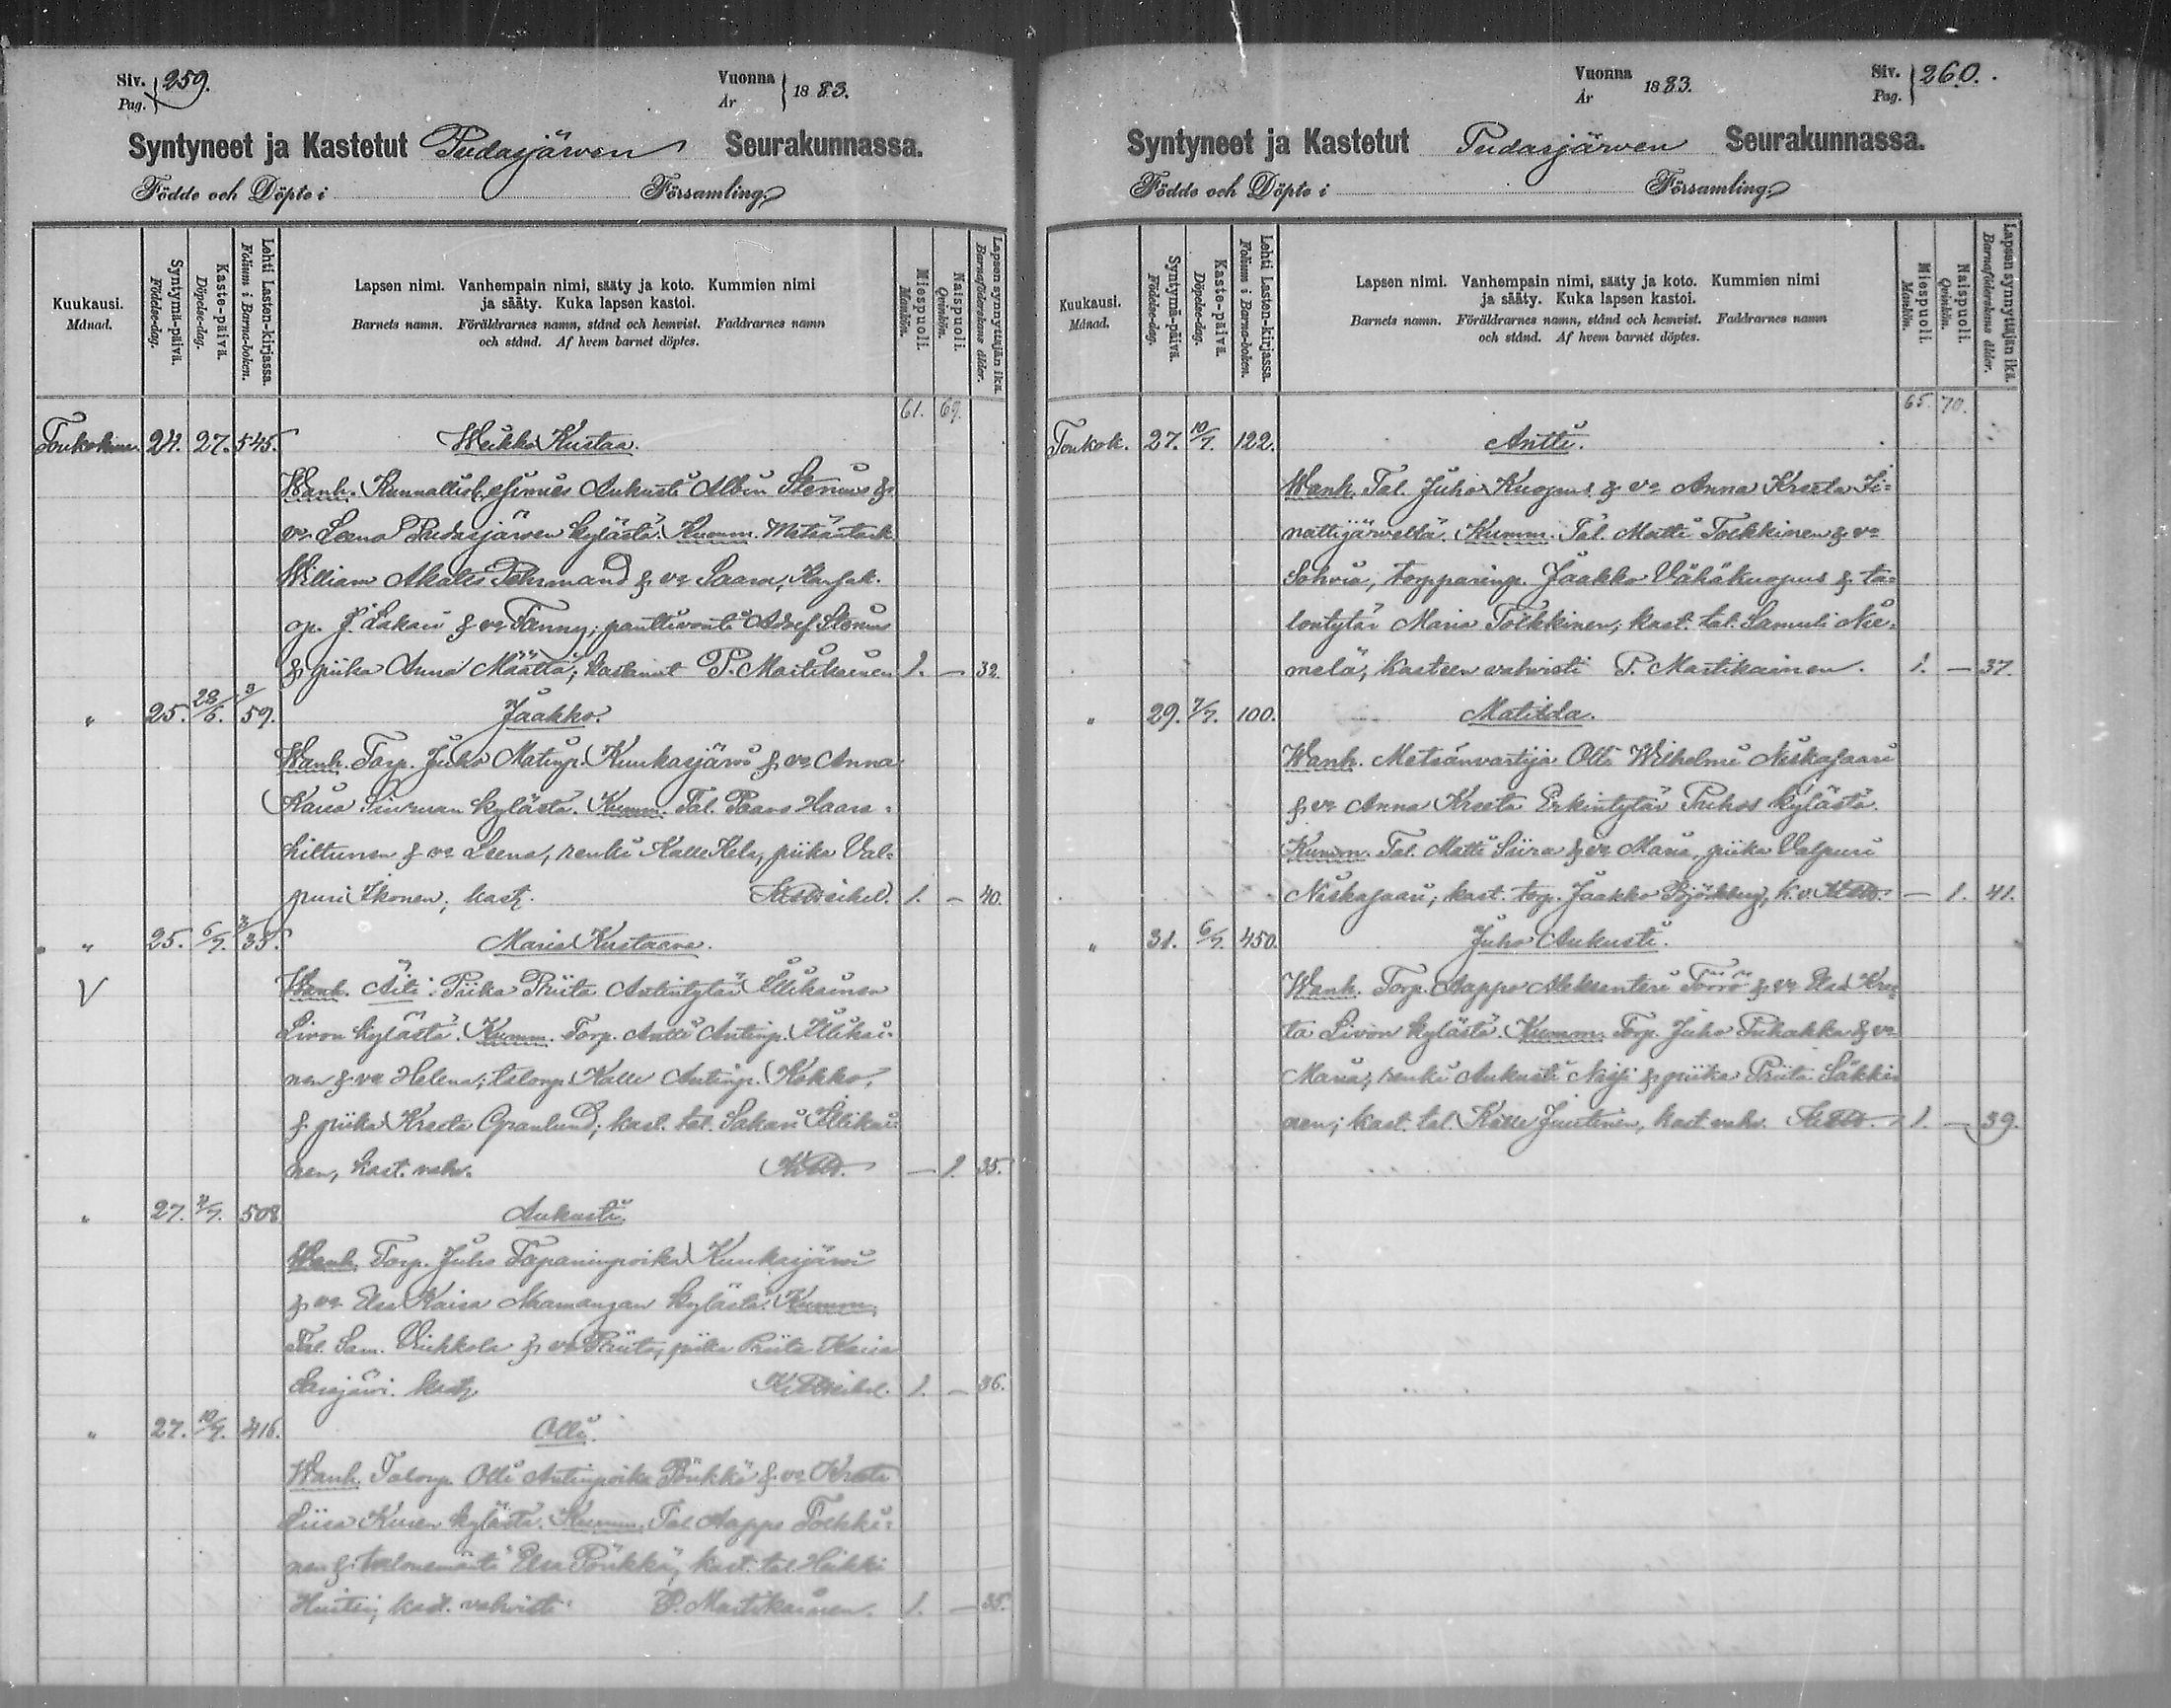 Siv. Pag. 259.
Vuonna År 1883.
Syntyneet ja Kastetut Pudasjärven Seurakunnassa.
Födde och Döpte i Församling
Kuukausi. Månad.
Syntymä-päivä. Födelse-dag.
Kaste-päivä. Döpelse-dag.
Lehti Lasten-kirjassa. Folium i Barna-boken.
Lapsen nimi. Vanhempain nimi, sääty ja koto. Kummien nimi
ja sääty. Kuka lapsen kastoi.
Barnets namn. Föräldrarnes namn, stånd och hemvist. Faddrarnes namn
och stånd. Af hvem barnet döptes.
Miespuoli. Mankön.
Naispuoli. Qvinkön.
Lapsen synnyttäjän ikä. Barnaföderskans ålder.
61. 69.
Toukokuu. 24. 27. 545. Heikko Kustaa.
Wanh. Kunnallisk. esimies Aukusti Albin Stenius &
vo Leena Pudasjärven kylästä. Kumm. Metsäntark.
William Akates Pehrmand & vo Saara, Kansak.
op. J. Lakari & vo Fanny, panttivouti Adolf Stenius
& piika Anna Määttä; kastanut P. Martikainen 1. — 32.
" 25. 28/5. 3/59. Jaakko.
Wanh. Torp. Juho Matinp. Kuukasjärvi & vo Anna
Kaisa Siuruan kylästä. Kumm. Tal. Paavo Haara-
hiltunen & vo Leena, renki Kalle Kela, piika Val-
puri Ikonen; kast. 1. — 40.
" 25. 6/7. 35. Maria Kustaava.
V
Wanh. Äiti: Piika Priita Antintytär Illikainen
Livon kylästä. Kumm. Torp. Antti Antinp. Illikai-
nen & vo Helena; talonp. Kalle Antinp. Kokko,
& piika Kreeta Granlund; kast. tal. Sakari Illikai-
nen, kast. vahv. — 1. 35.
" 27. 4/7. 508 Aukusti.
Wanh. Torp. Juho Tapaninpoika Kuukasjärvi
& vo Elsa Kaisa Naamangan kylästä. Kumm.
Tal. Sam. & vo Priita, piika Priita Kaisa
Sarajärvi. kast. 1. — 36.
" 27. 10/7. 416. Olli.
Wanh. Talonp. Olli Antinpoika Pönkkö & vo Kreeta
Liisa Kuren kylästä. Kumm. Tal. Aappo Tolkki-
nen & talonemäntä Elsa Pönkkö; kast. tal. Heikki
kast. vahvisti P. Martikainen. 1. — 35.
Vuonna År 1883.
Siv. Pag. 260.
Syntyneet ja Kastetut Pudasjärven Seurakunnassa.
Födde och Döpte i Församling
Kuukausi. Månad.
Syntymä-päivä. Födelse-dag.
Kaste-päivä. Döpelse-dag.
Lehti Lasten-kirjassa. Folium i Barna-boken.
Lapsen nimi. Vanhempain nimi, sääty ja koto. Kummien nimi
ja sääty. Kuka lapsen kastoi.
Barnets namn. Föräldrarnes namn, stånd och hemvist. Faddrarnes namn
och stånd. Af hvem barnet döptes.
Miespuoli. Mankön.
Naispuoli. Qvinkön.
Lapsen synnyttäjän ikä. Barnaföderskans ålder.
65. 70.
Toukok. 27. 10/7. 122. Antti.
Wanh. Tal. Juho Kuopus & vo Anna Kreeta Ji-
nättijärveltä. Kumm. Tal. Matti Tolkkinen & vo
Sohvia, torpparinp. Jaakko Vähäkuopus & ta-
lontytär Maria Tolkkinen; kast. tal. Samuli Nie-
melä; kasteen vahvisti P. Martikainen. 1. — 37.
" 29. 7/7. 100. Matilda.
Wanh. Metsänvartija Olli Wilhelmi Niskasaari
& vo Anna Kreeta Erkintytär Puhos kylästä.
Kumm. Tal. Matti Siira & vo Maria, piika Valpuri
Niskasaari; kast. torp. Jaakko Björkberg, k. v. — 1. 41.
" 31. 6/7. 450. Juho Aukusti.
Wanh. Torp. Aappo Aleksanteri Törrö & vo Elsa Kree-
ta Livon kylästä. Kumm. Torp. Juho Puhakka & vo
Maria; renki Aukusti & piika Priita Säkki-
nen; kast. tal. Kalle Juutinen, kast. vahv. 1. — 39.